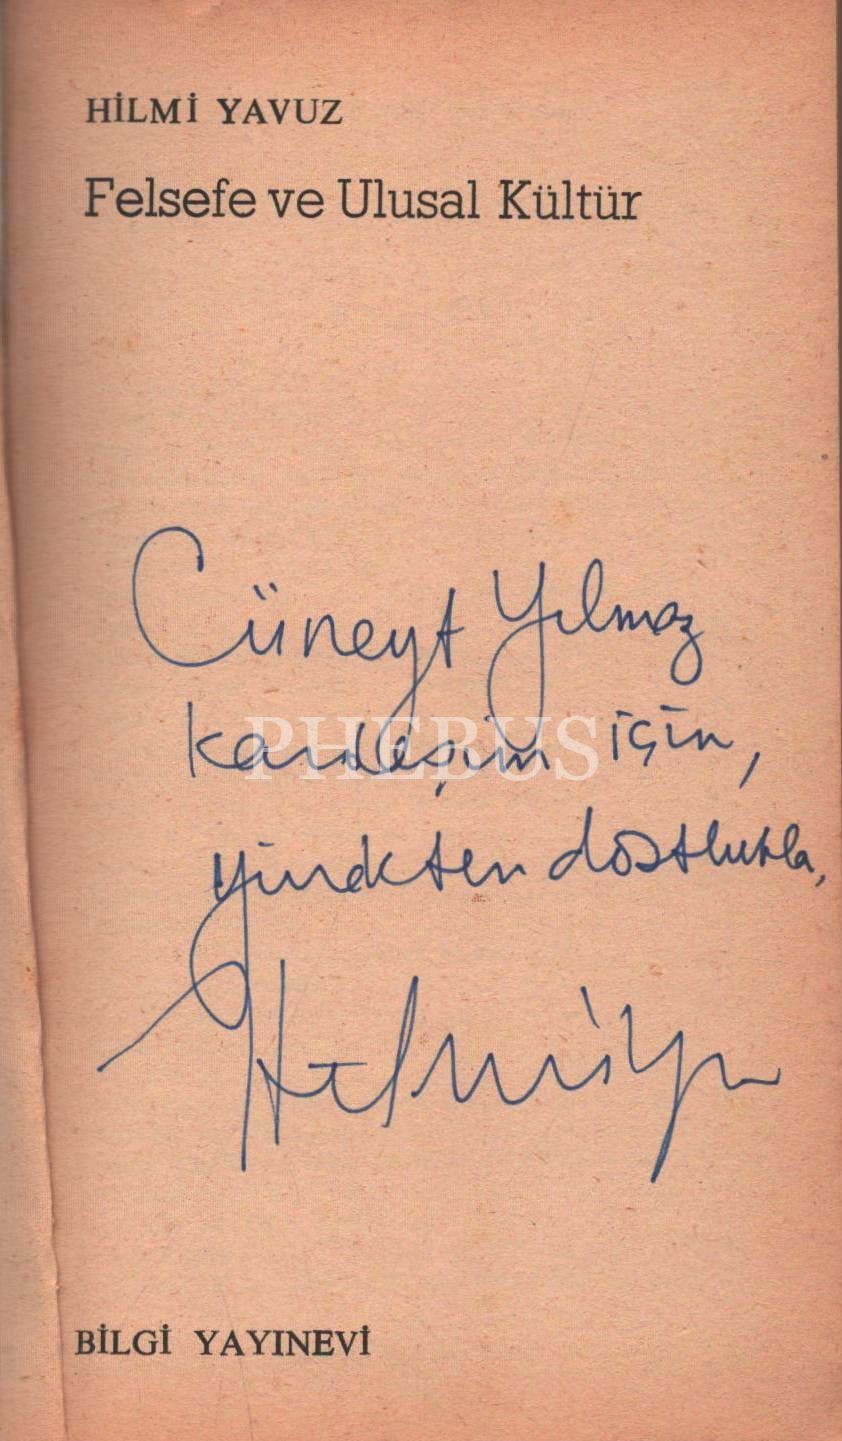 HİLMİ YAVUZ
Felsefe ve Ulusal Kültür
Cüneyt Yılmaz
kardeşim için,
PHEBUS
yürekten dostlukla,
Hilmi Y
BİLGİ YAYINEVİ